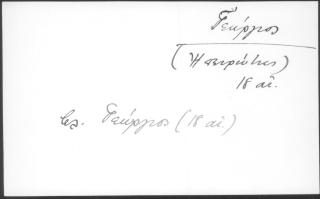 Γεώργιος
(Ἠπειρώτης)
18 αἰ.
βλ. Γεώργιος (18 αἰ.)